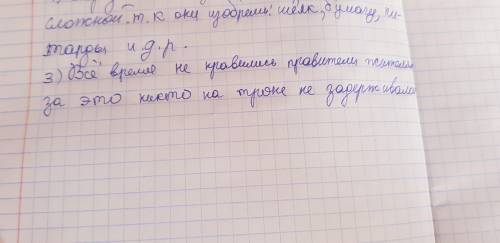 сложной. т.к они изобрели: шёлк, бумагу, пи-
тарды и.д.р.
3) Всё время не нравились правители жителям
за это никто на троне не задерживался